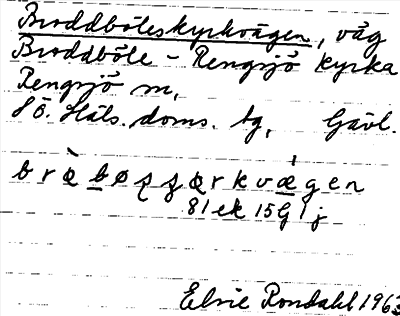 Broddböleskyrkvägen, väg
Broddböle - Rengsjö kyrka
Rengsjö sn,
Sö. Häls. doms. tg, Gävl.
81 ek 15 G 1 j
Elvie Rondahl 1963